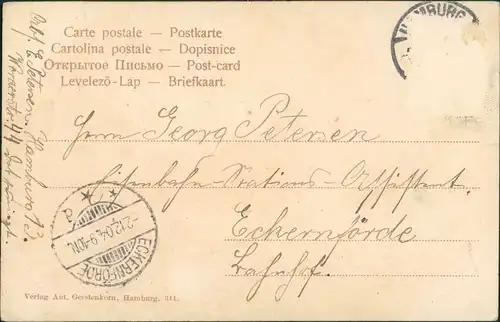 Carte postale — Postkarte
Cartolina postale — Dopisnice
Открытое Письмо — Post-card
Levelező-Lap — Briefkaart.
HAMBURG
Abs. E. Petersen, Hamburg 13.
44
Herrn Georg Petersen
Eisenbahn-Stations-Assistent.
Eckernförde
Bahnhof.
ECKERNFÖRDE
2.12.04. 9-10N.
Verlag Ant. Gerstenkorn, Hamburg. 311.